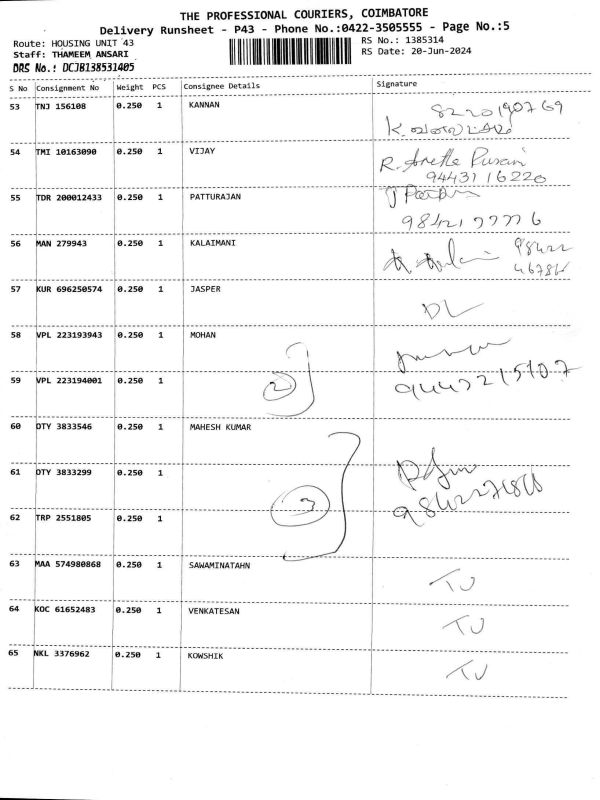 THE PROFESSIONAL COURIERS, COIMBATORE
Delivery Runsheet - P43 - Phone No.:0422-3505555 - Page No.:5
Route: HOUSING UNIT 43
RS No.: 1385314
Staff: THAMEEM ANSARI
RS Date: 20-Jun-2024
DRS No.: DCJB138531405
S No Consignment No Weight PCS Consignee Details Signature
53 TNJ 156108 0.250 1 KANNAN 8220190769
54 TMI 10163090 0.250 1 VIJAY
9443116220
55 TDR 200012433 0.250 1 PATTURAJAN
56 MAN 279943 0.250 1 KALAIMANI 98422
57 KUR 696250574 0.250 1 JASPER DL
58 VPL 223193943 0.250 1 MOHAN
59 VPL 223194001 0.250 1 2
60 OTY 3833546 0.250 1 MAHESH KUMAR
61 OTY 3833299 0.250 1
62 TRP 2551805 0.250 1 3
63 MAA 574980868 0.250 1 SAWAMINATAHN TU
64 KOC 61652483 0.250 1 VENKATESAN TU
65 NKL 3376962 0.250 1 KOWSHIK TU